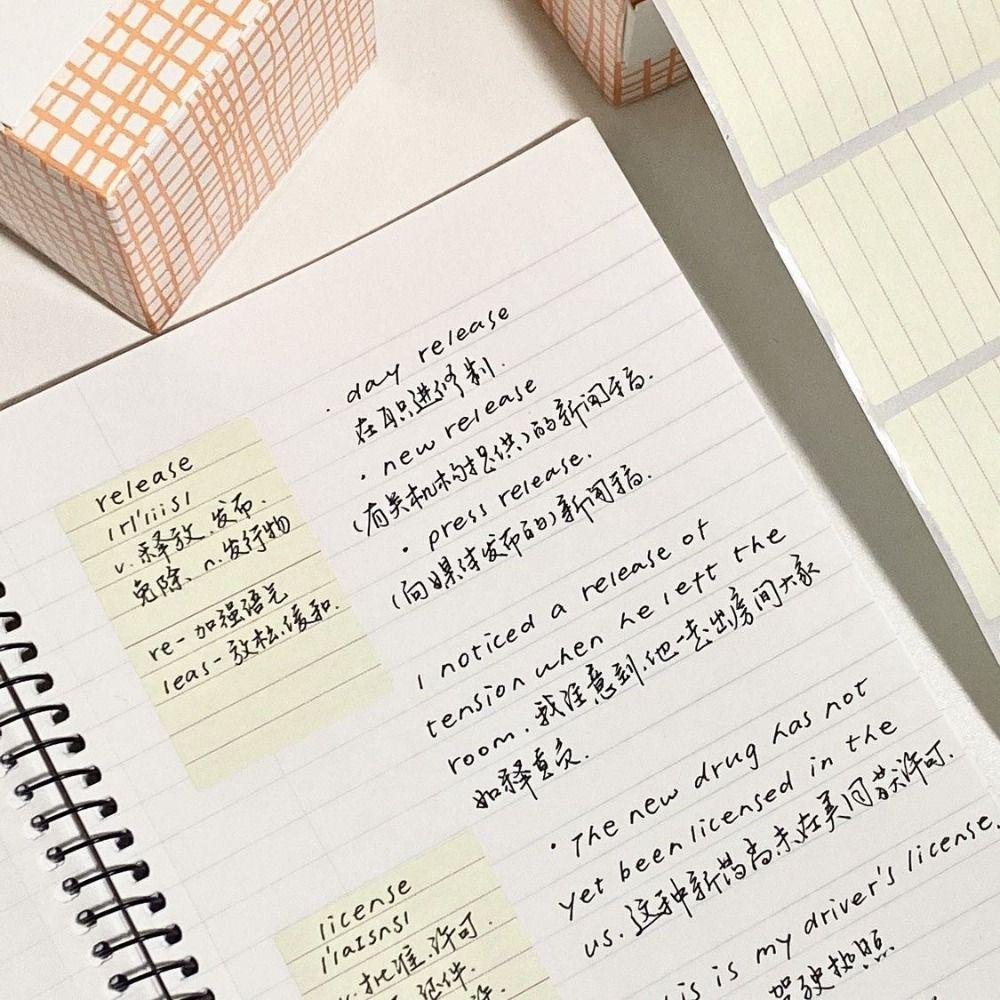 release
/rI'liis/
v. 释放、发布.
免除、n. 发行物
re- 加强语气
leas- 放松、缓和.
· day release
在职进修制.
· new release
(有关机构提供)的新闻稿.
· press release.
(向媒体发布的)新闻稿.
I noticed a release of
tension when he left the
room. 我注意到,他一去出房间大家
如释重负.
license
/'laIsns/
v. 批准、许可.
证件.
· The new drug has not
yet been licensed in the
us. 这种新药尚未在美国获许可.
is is my driver's license.
驾驶执照.